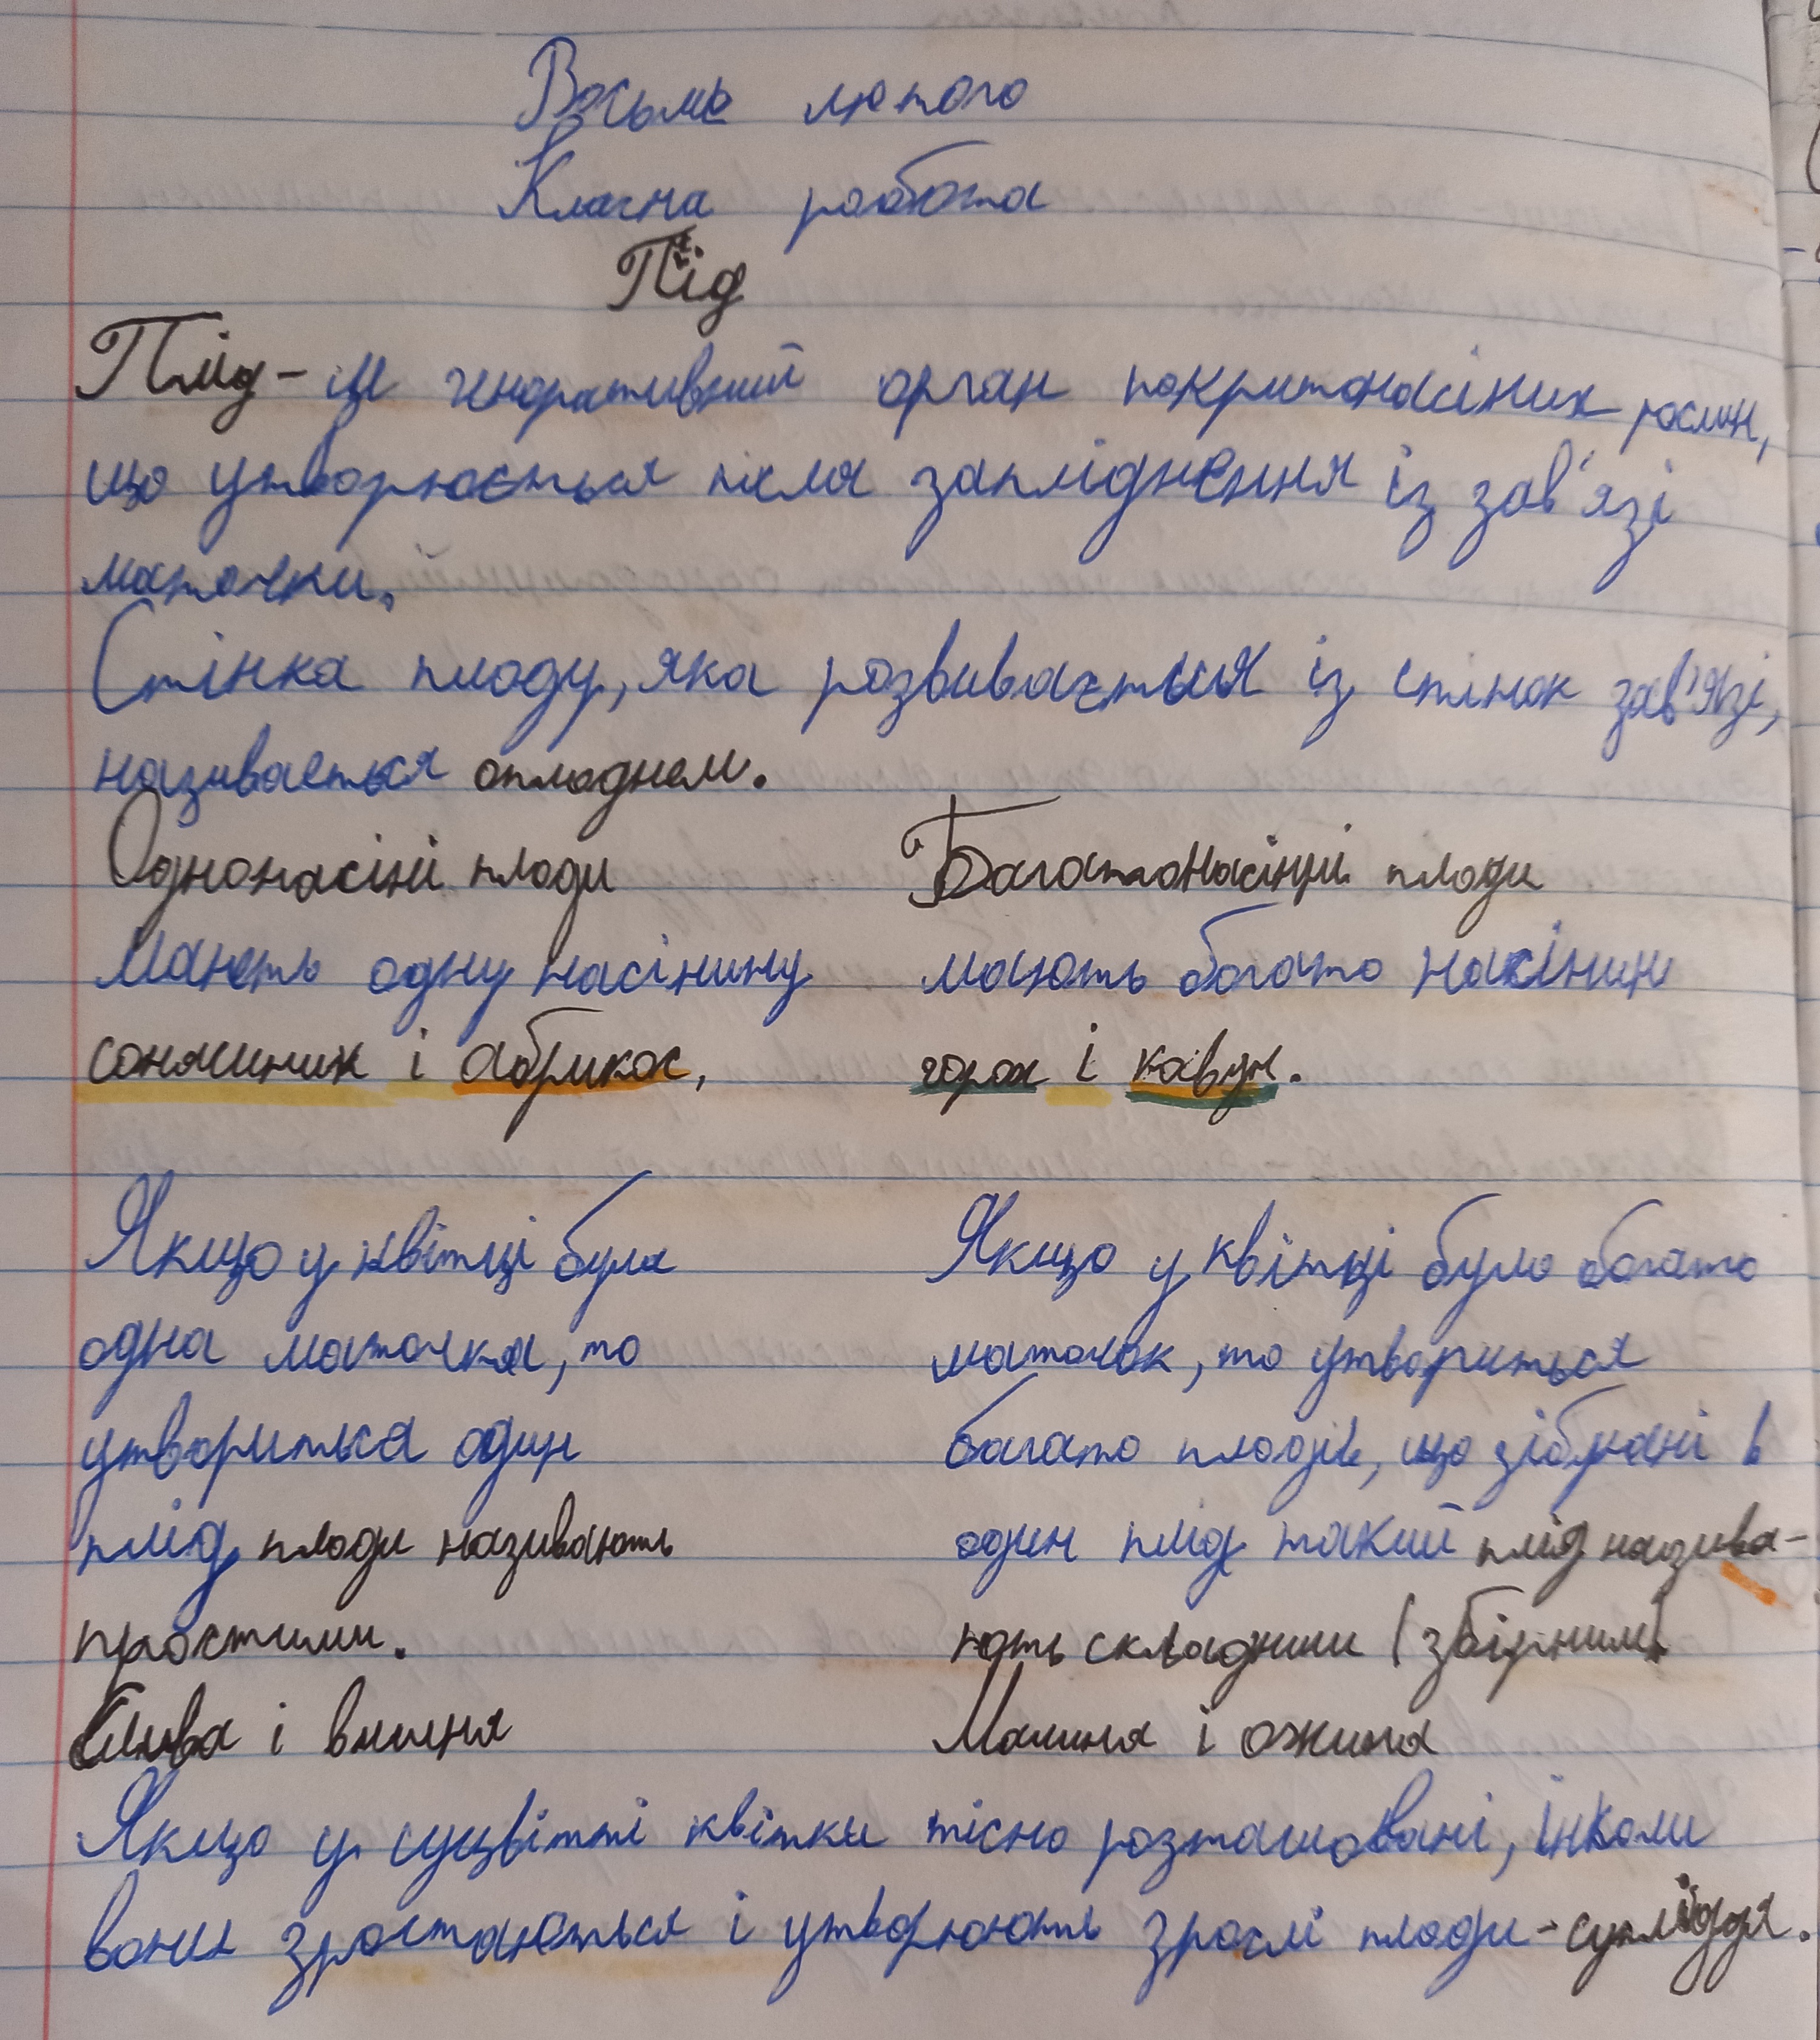 Восьме лютого
Класна робота
Плід
Плід - це генеративний орган покритонасіних рослин,
що утворюється після запліднення із зав'язі
маточки.
Стінка плоду, яка розвивається із стінок зав'язі,
називається оплоднем.
Однонасіні плоди
Мають одну насінину
соняшник і абрикос,
Багатонасінні плоди
мають багато насінин
горох і кавун.
Якщо у квітці була
одна маточка, то
утвориться один
плід плоди називають
простими.
Слива і вишня
Якщо у квітці було багато
маточок, то утвориться
багато плодів, що зібрані в
один плід такий плід назива-
ють складними (збірним).
Малина і ожина
Якщо у суцвітті квітки тісно розташовані, інколи
вони зростаються і утворюють зрослі плоди - супліддя.